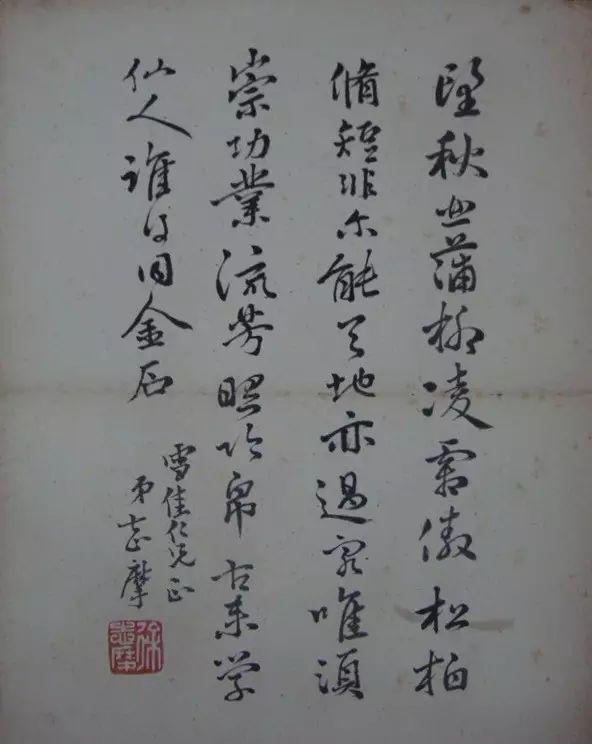 望秋蒲柳凌霜傲松柏
脩短非尓能天地亦過客唯須
崇功業流芳照竹帛古来学
仙人誰得同金石
雪佳仁兄正
弟志摩
徐志摩